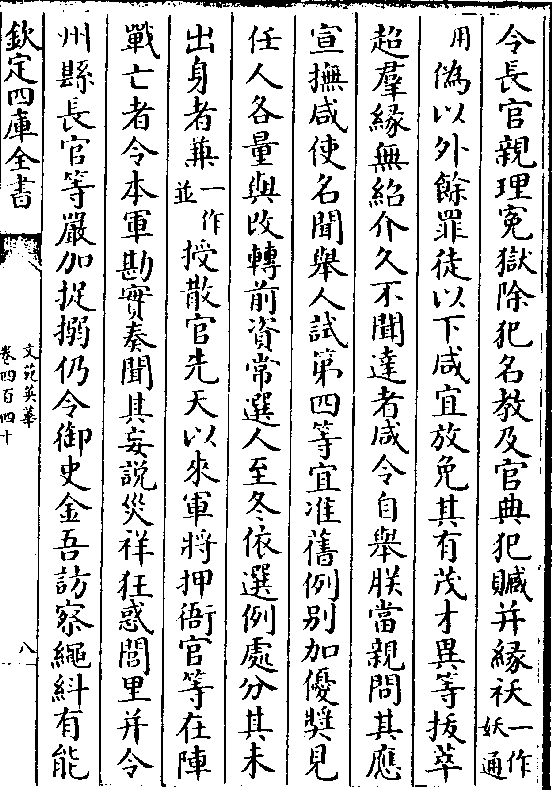 令長官親理寃獄除犯名教及官典犯贓并緣祅一作妖通
用僞以外餘罪徒以下咸宜放免其有茂才異等拔萃
超羣緣無紹介久不聞達者咸令自舉朕當親問其應
宣撫咸使名聞舉人試第四等宜准舊例别加優奬見
任人各量與改轉前資常選人至冬依選例處分其未
出身者兼一作並授散官先天以來軍將押衙官等在陣
戰亡者令本軍勘實奏聞其妄說災祥狂惑閭里并令
州縣長官等嚴加捉搦仍令御史金吾訪察繩糾有能
欽定四庫全書
文苑英華
卷四百四十
八